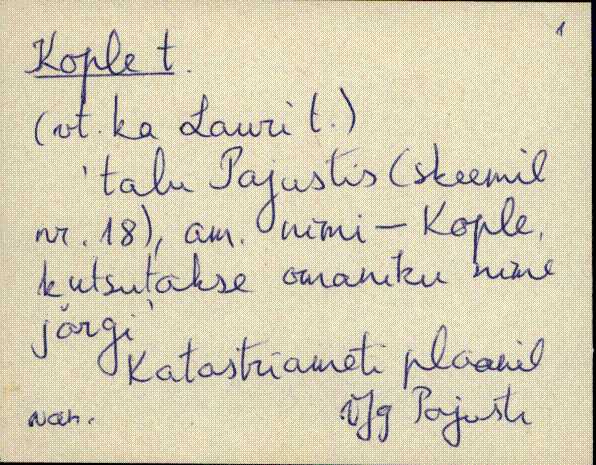 1
Kople t.
(vt. ka Lauri t.)
'talu Pajustis (skeemil
nr. 18), am. nimi – Kople,
kutsutakse omaniku nime
järgi'
Katastriameti plaanil
V/g Pajusti